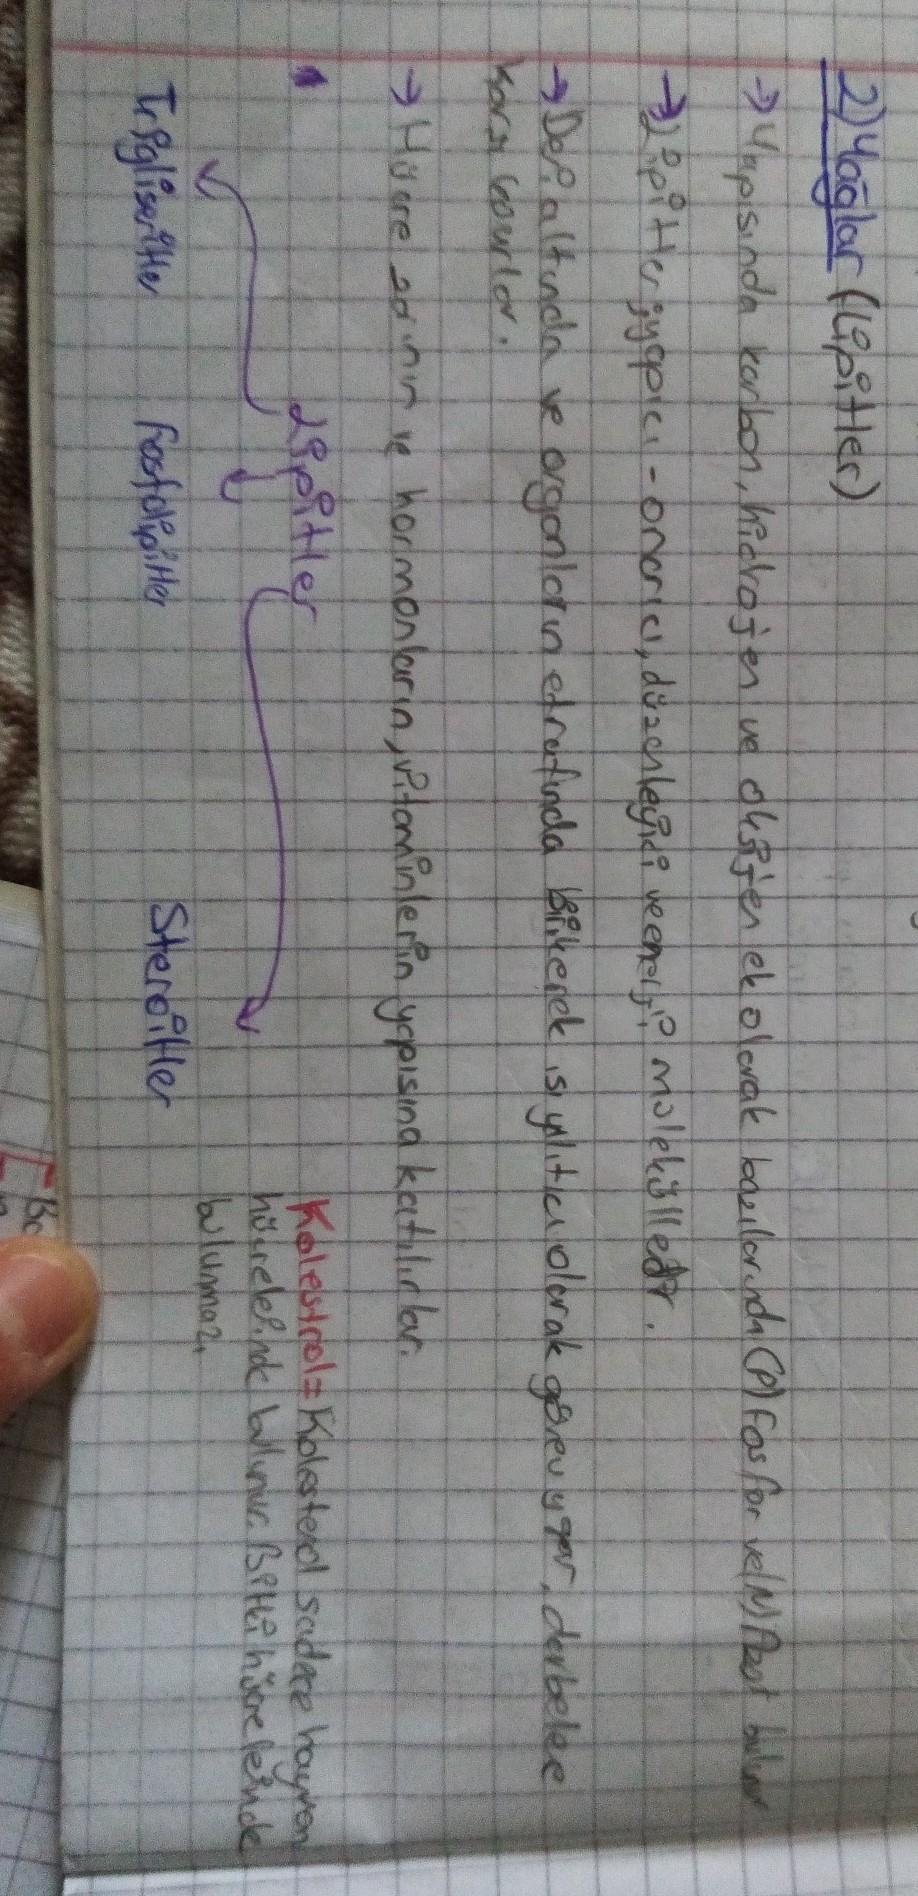 2) Yağlar (Lipitler)
→ Yapısında karbon, hidrojen ve oksijen ek olarak bazılarında (P) fosfor ve (N) Azot bulunur
→ Lipitler; yapıcı - onarıcı, düzenleyici ve enerji moleküller.
→ Deri altında ve organların etrafında birikerek ısı yalıtıcı olarak görev yapar, darbelere
karşı korurlar.
→ Hücre zarının ve hormonların, vitaminlerin yapısına katılırlar.
Lipitler
Trigliseritler Fosfolipitler Steroitler
Kolestrol = Kolesterol sadece hayvan
hücrelerinde bulunur. Bitki hücrelerinde
bulunmaz.